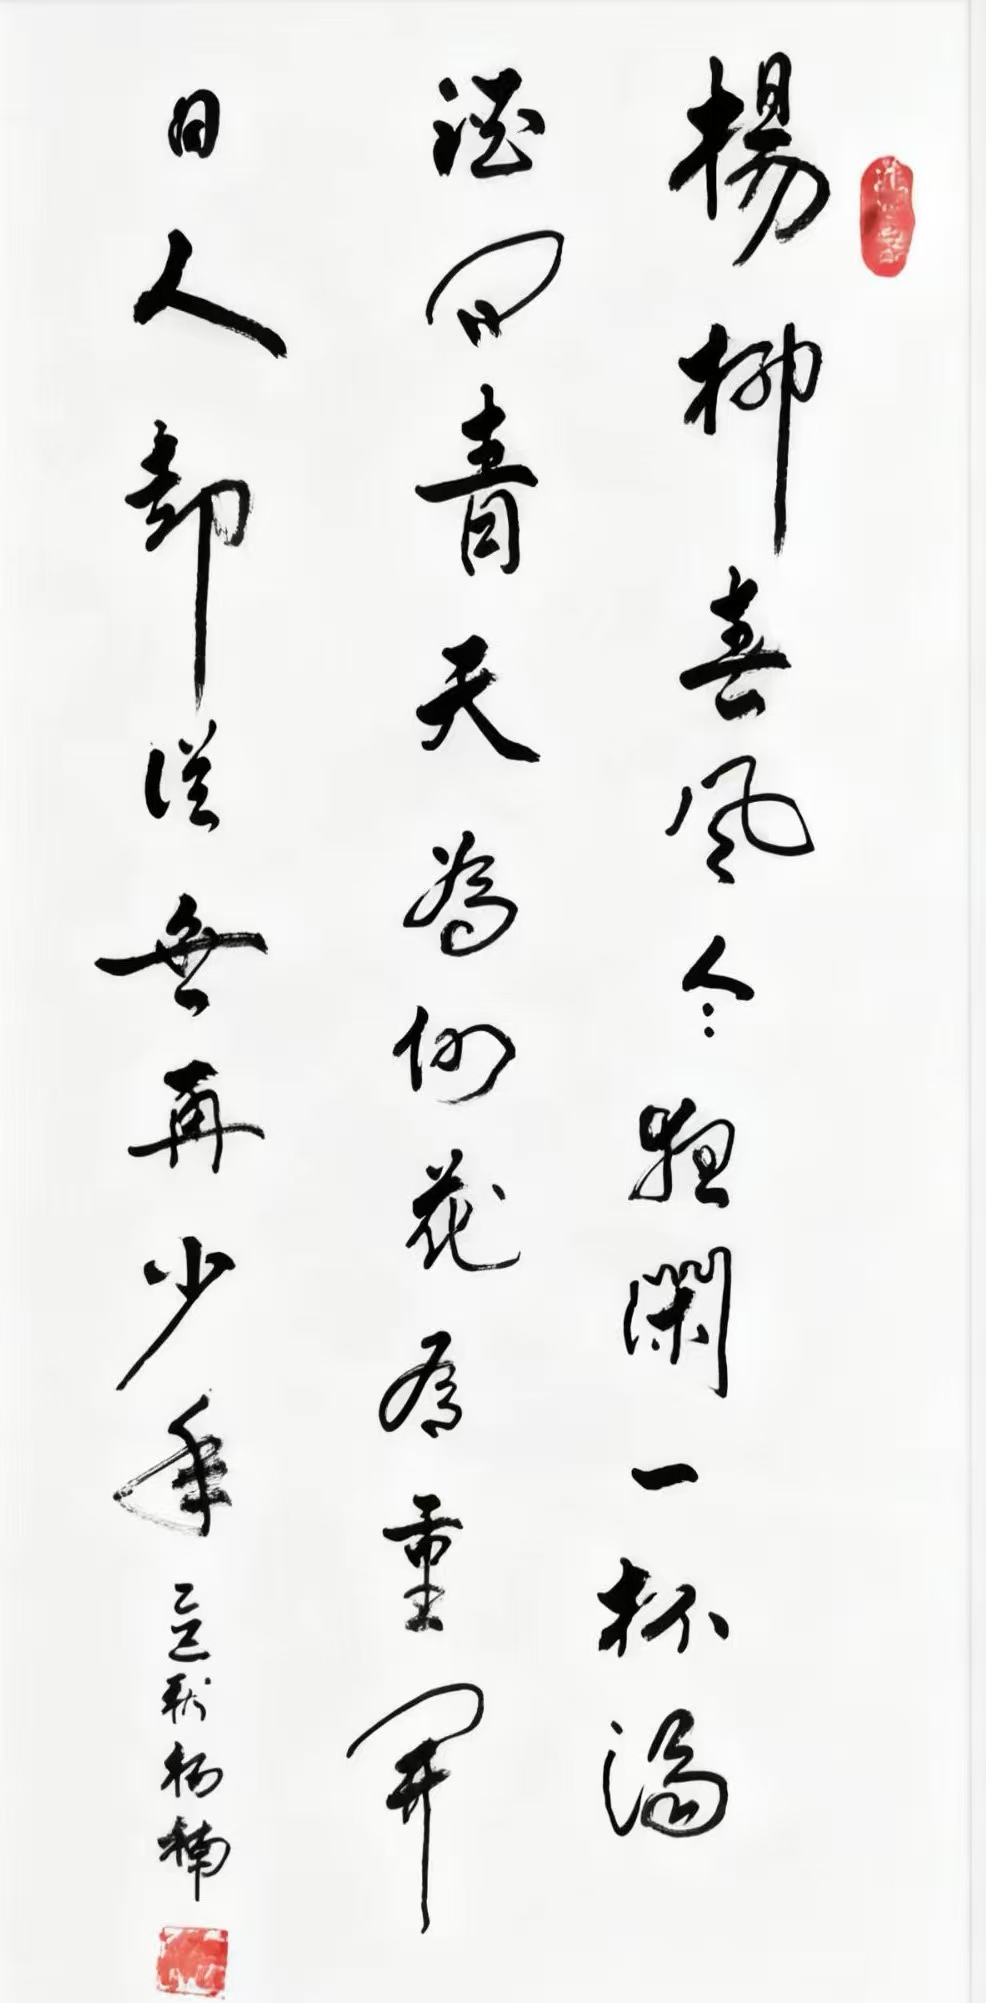 楊柳春風今闌一杯濁
酒問青天為何花有重開
日人却從無再少年
乙巳秋楊楠